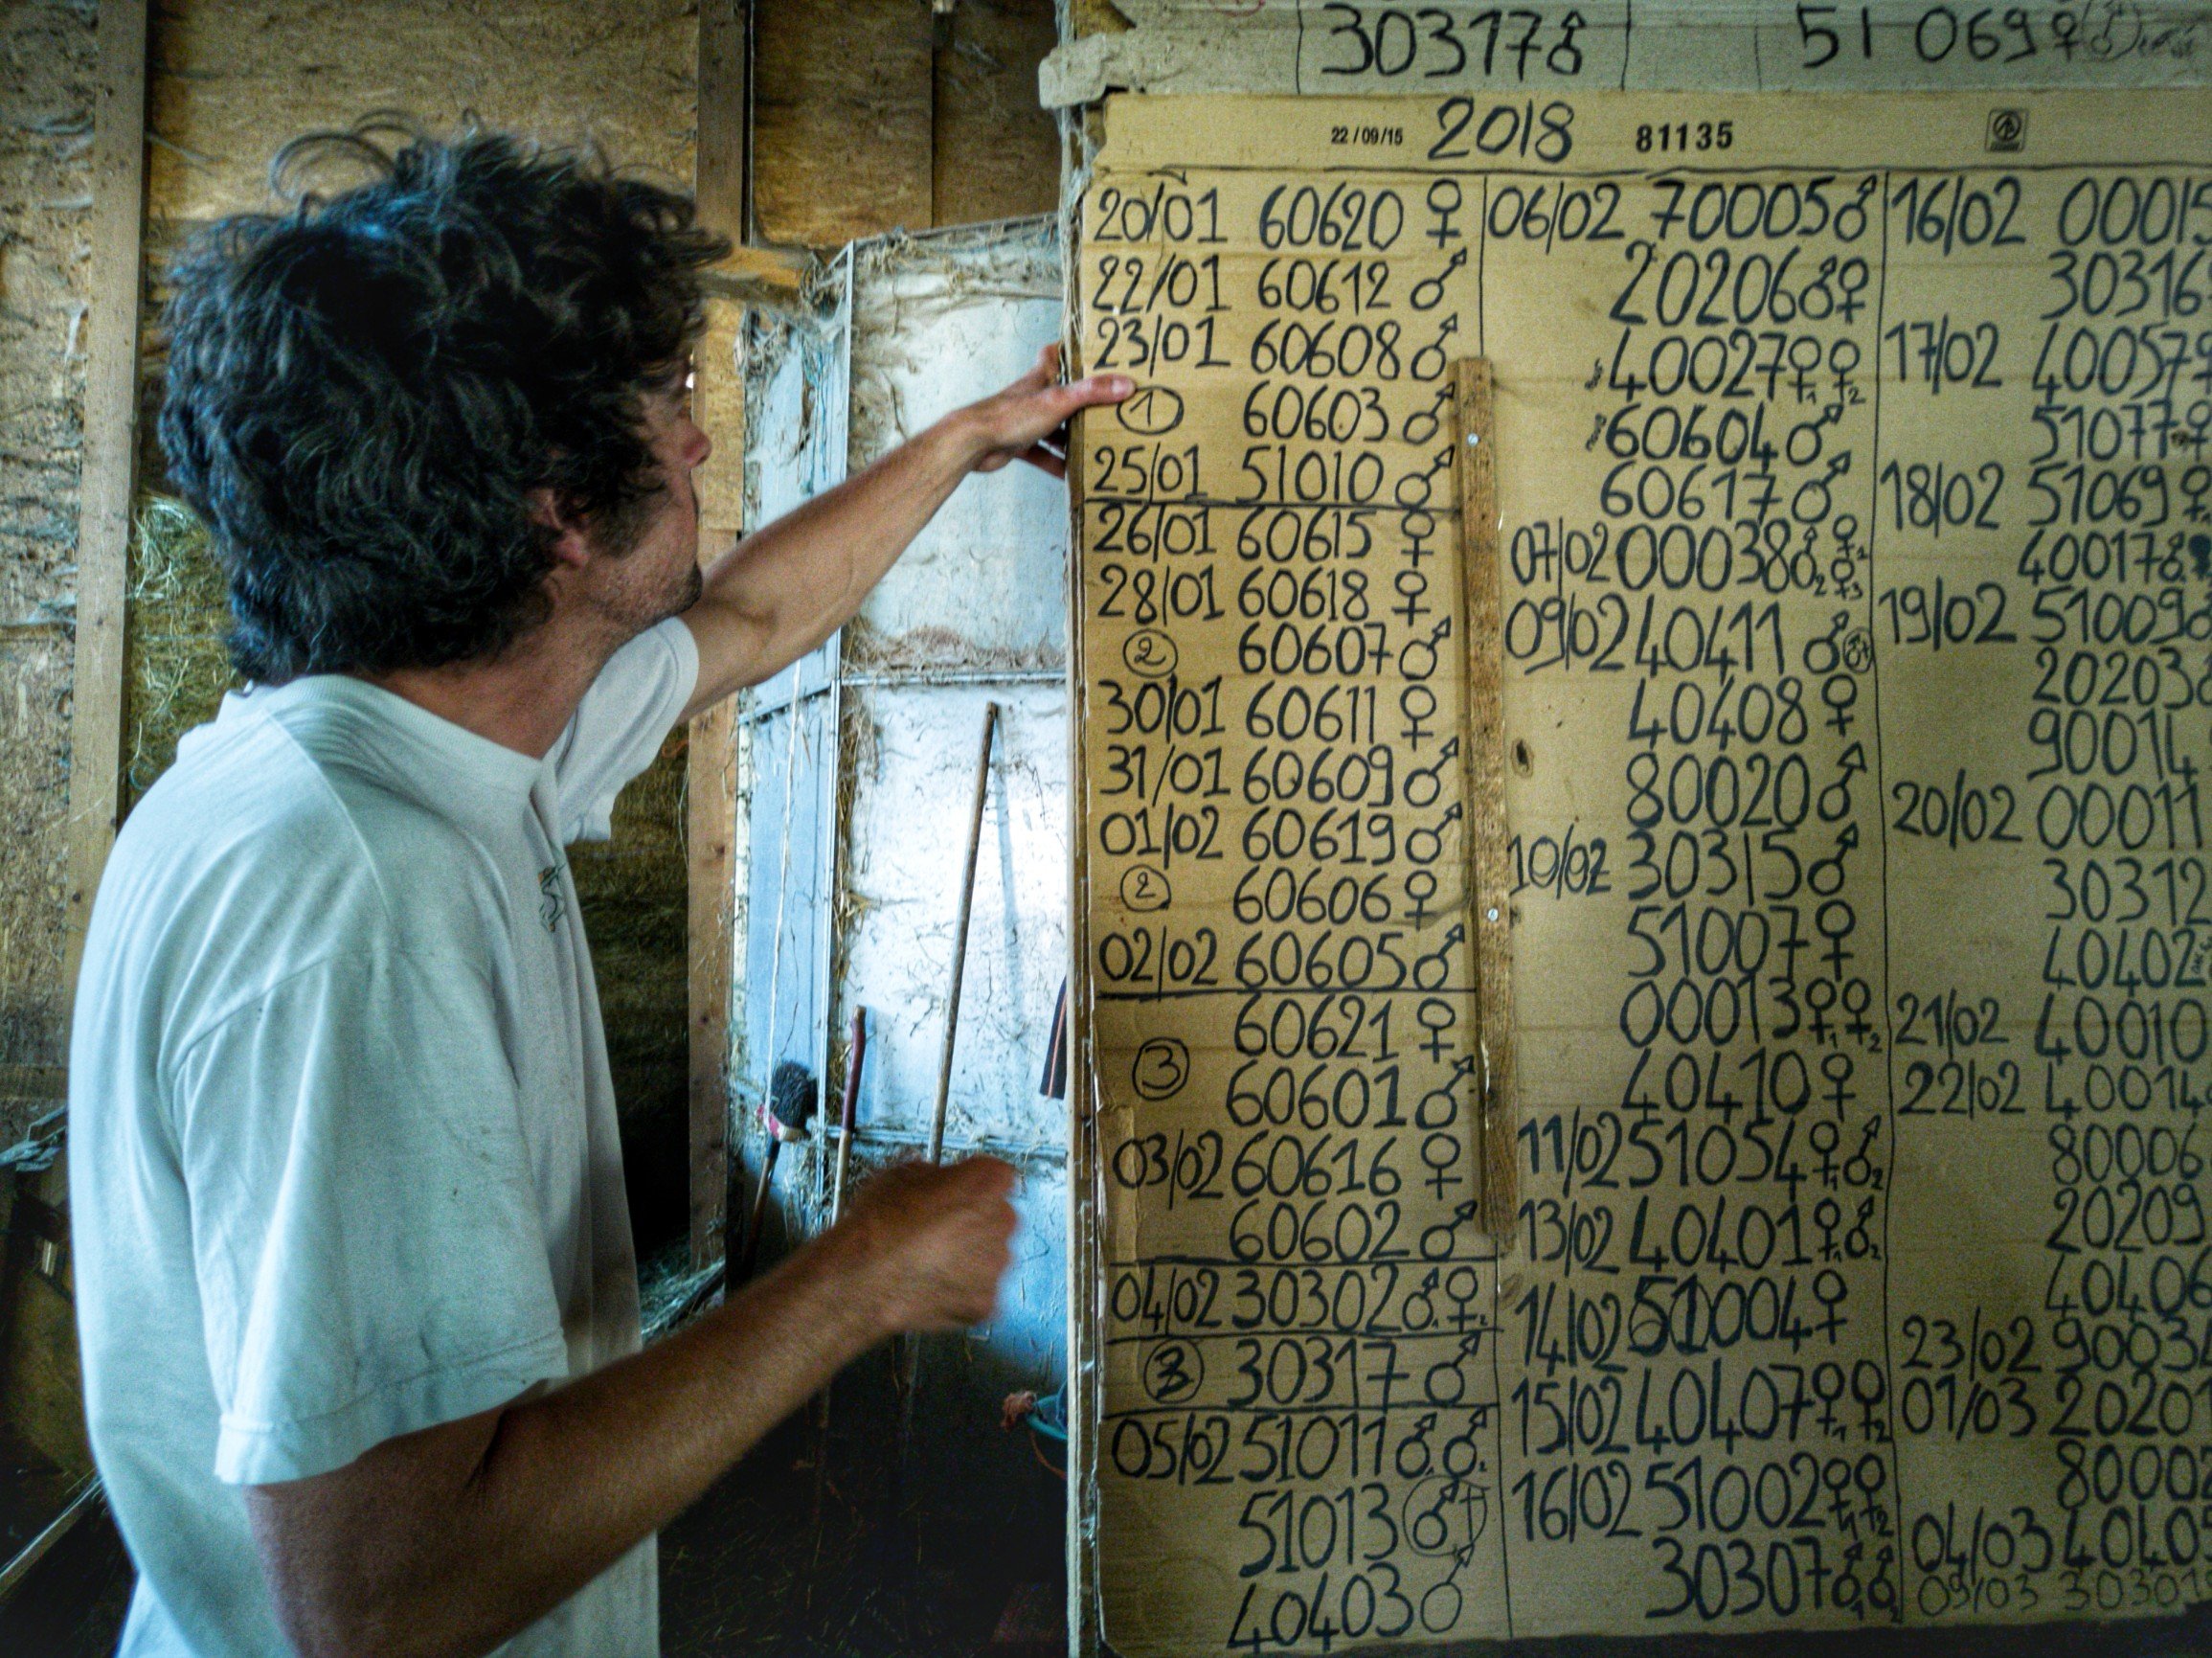 30317♂ 51069♀
22/09/15 2018 81135
20/01 60620 ♀
22/01 60612 ♂
23/01 60608 ♂
① 60603 ♂
25/01 51010 ♂
26/01 60615 ♀
28/01 60618 ♀
② 60607 ♂
30/01 60611 ♀
31/01 60609 ♂
01/02 60619 ♂
② 60606 ♀
02/02 60605 ♂
60621 ♀
③
60601 ♂
03/02 60616 ♀
60602 ♂
04/02 30302 ♂1 ♀2
30317 ♂
05/02 51011 ♂ ♂
51013 ♂ †
40403 ♂
06/02 70005 ♂
20206 ♂♀
40027 ♀1 ♀2
60604 ♂
60617 ♂
07/02 00038 ♂2 ♀1 ♀3
09/02 40411 ♂
40408 ♀
80020 ♂
10/02 30315 ♂
51007 ♀
00013 ♀1 ♀2
40410 ♀
11/02 51054 ♀1 ♂2
13/02 40401 ♀1 ♂2
14/02 51004 ♀
15/02 40407 ♀1 ♀2
16/02 51002 ♀1 ♀2
30307 ♂1 ♂2
16/02 00015
30316
17/02 40057 ♀
51077 ♀
18/02 51069 ♀
40017
19/02 51009
20203
90014
20/02 00011
30312
40402
21/02 40010
22/02 40014
80006
20209
40406
23/02 9003
01/03 2020
8000
04/03 4040
09/03 3030